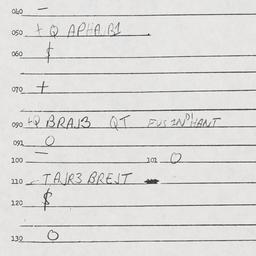 040 –
050 + Q APHA.B1
$
060
070 +
090 +Q BRAJ3 QT
091 O
100 – 101 O
110 – TAJR3 BREJT
120 $
130 O